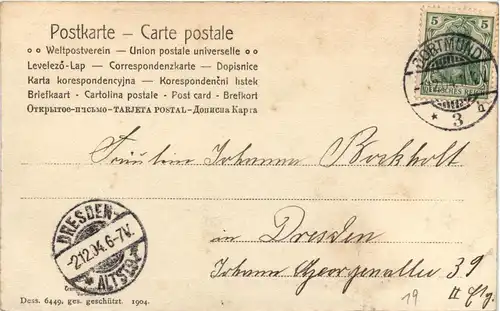 Postkarte – Carte postale
Weltpostverein – Union postale universelle
Levelező-Lap – Correspondenzkarte – Dopisnice
Karta korespondencyjna – Korespondenční lístek
Briefkaart - Cartolina postale - Post card - Brefkort
Открытое-письмо-TARJETA POSTAL-Дописна Карта
5 5
DEUTSCHES REICH
DORTMUND
* 3 h
Fräulein Johanna Bockholt
in Dresden
Johann Georgenallee 39
19 II Etg.
DRESDEN-
-2.12.04.6-7V.
ALTST.
Dess. 6449. ges. geschützt. 1904.